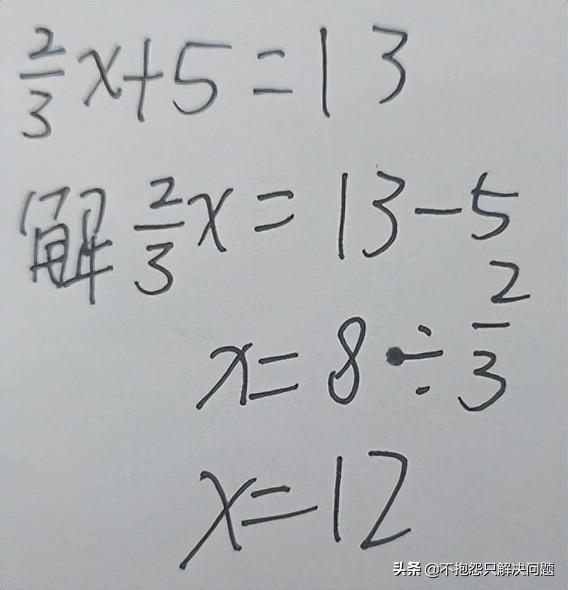 2/3 x+5=13
解 2/3 x=13-5
x=8÷2/3
x=12
头条 @不抱怨只解决问题